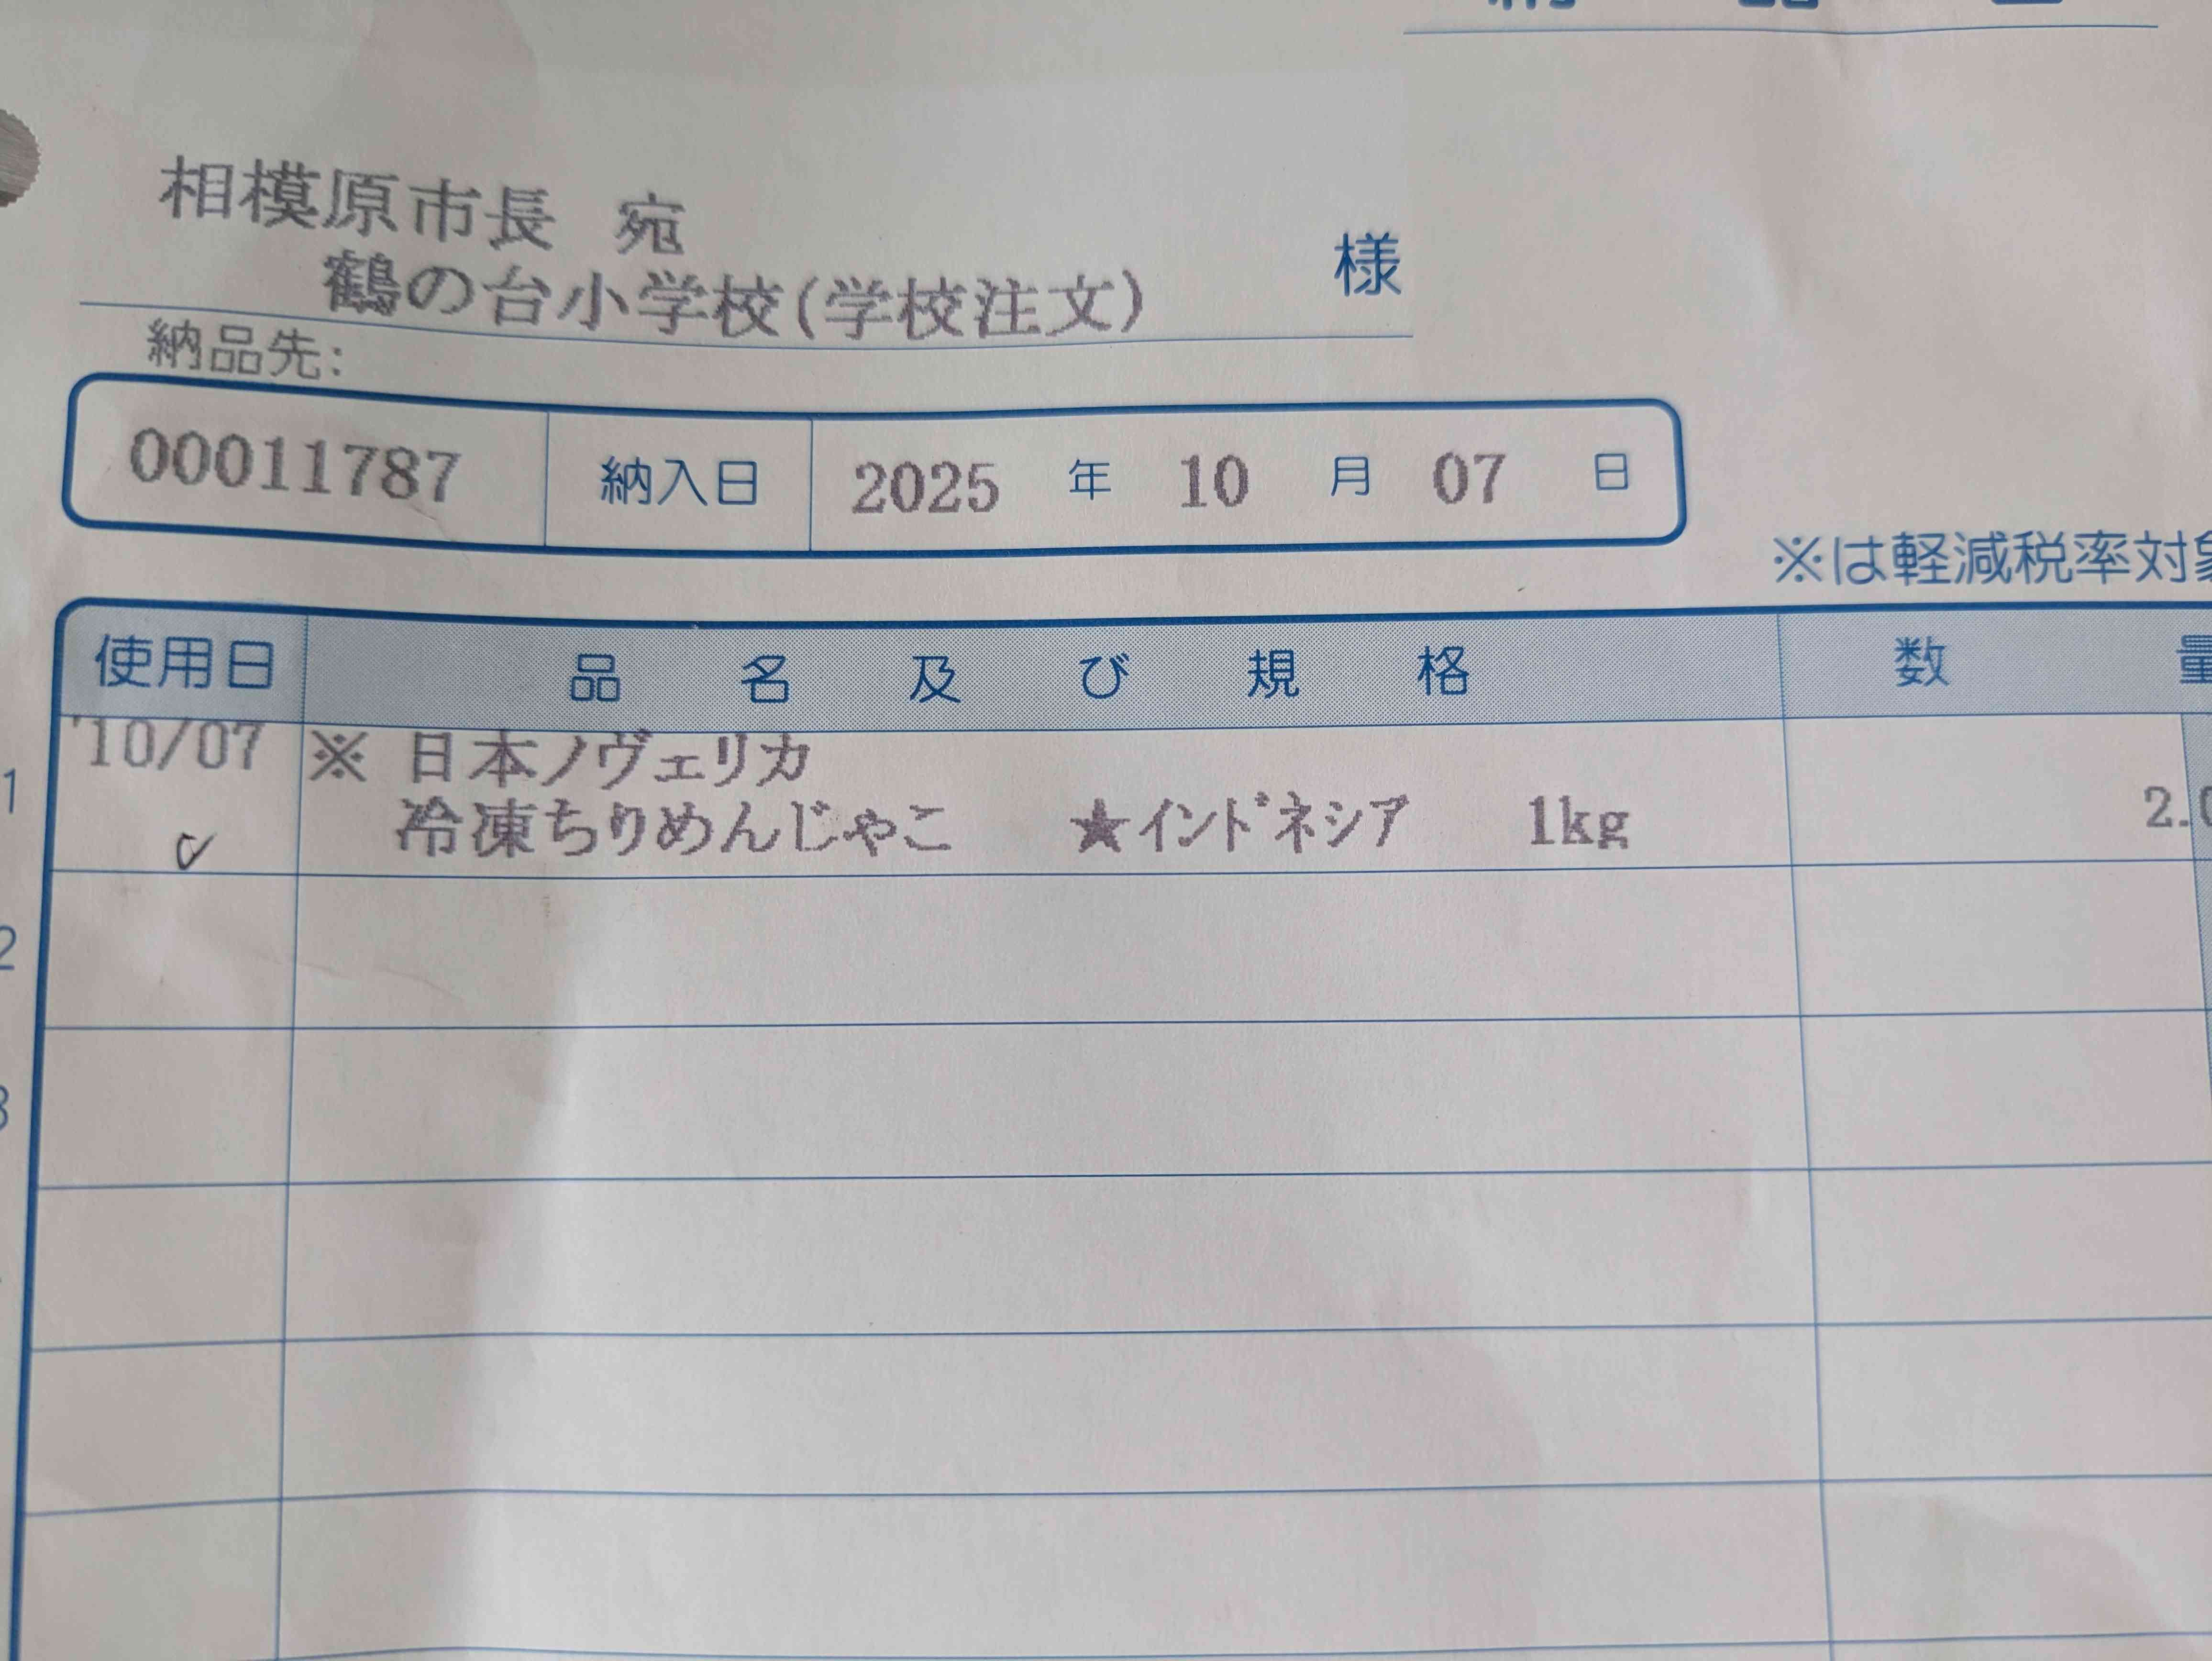 相模原市長 宛
鶴の台小学校(学校注文) 様
納品先:
00011787 納入日 2025 年 10 月 07 日
※は軽減税率対
使用日 品名及び規格 数量
1 '10/07 ※ 日本ノヴェリカ
冷凍ちりめんじゃこ ★インドネシア 1kg 2.
2
3